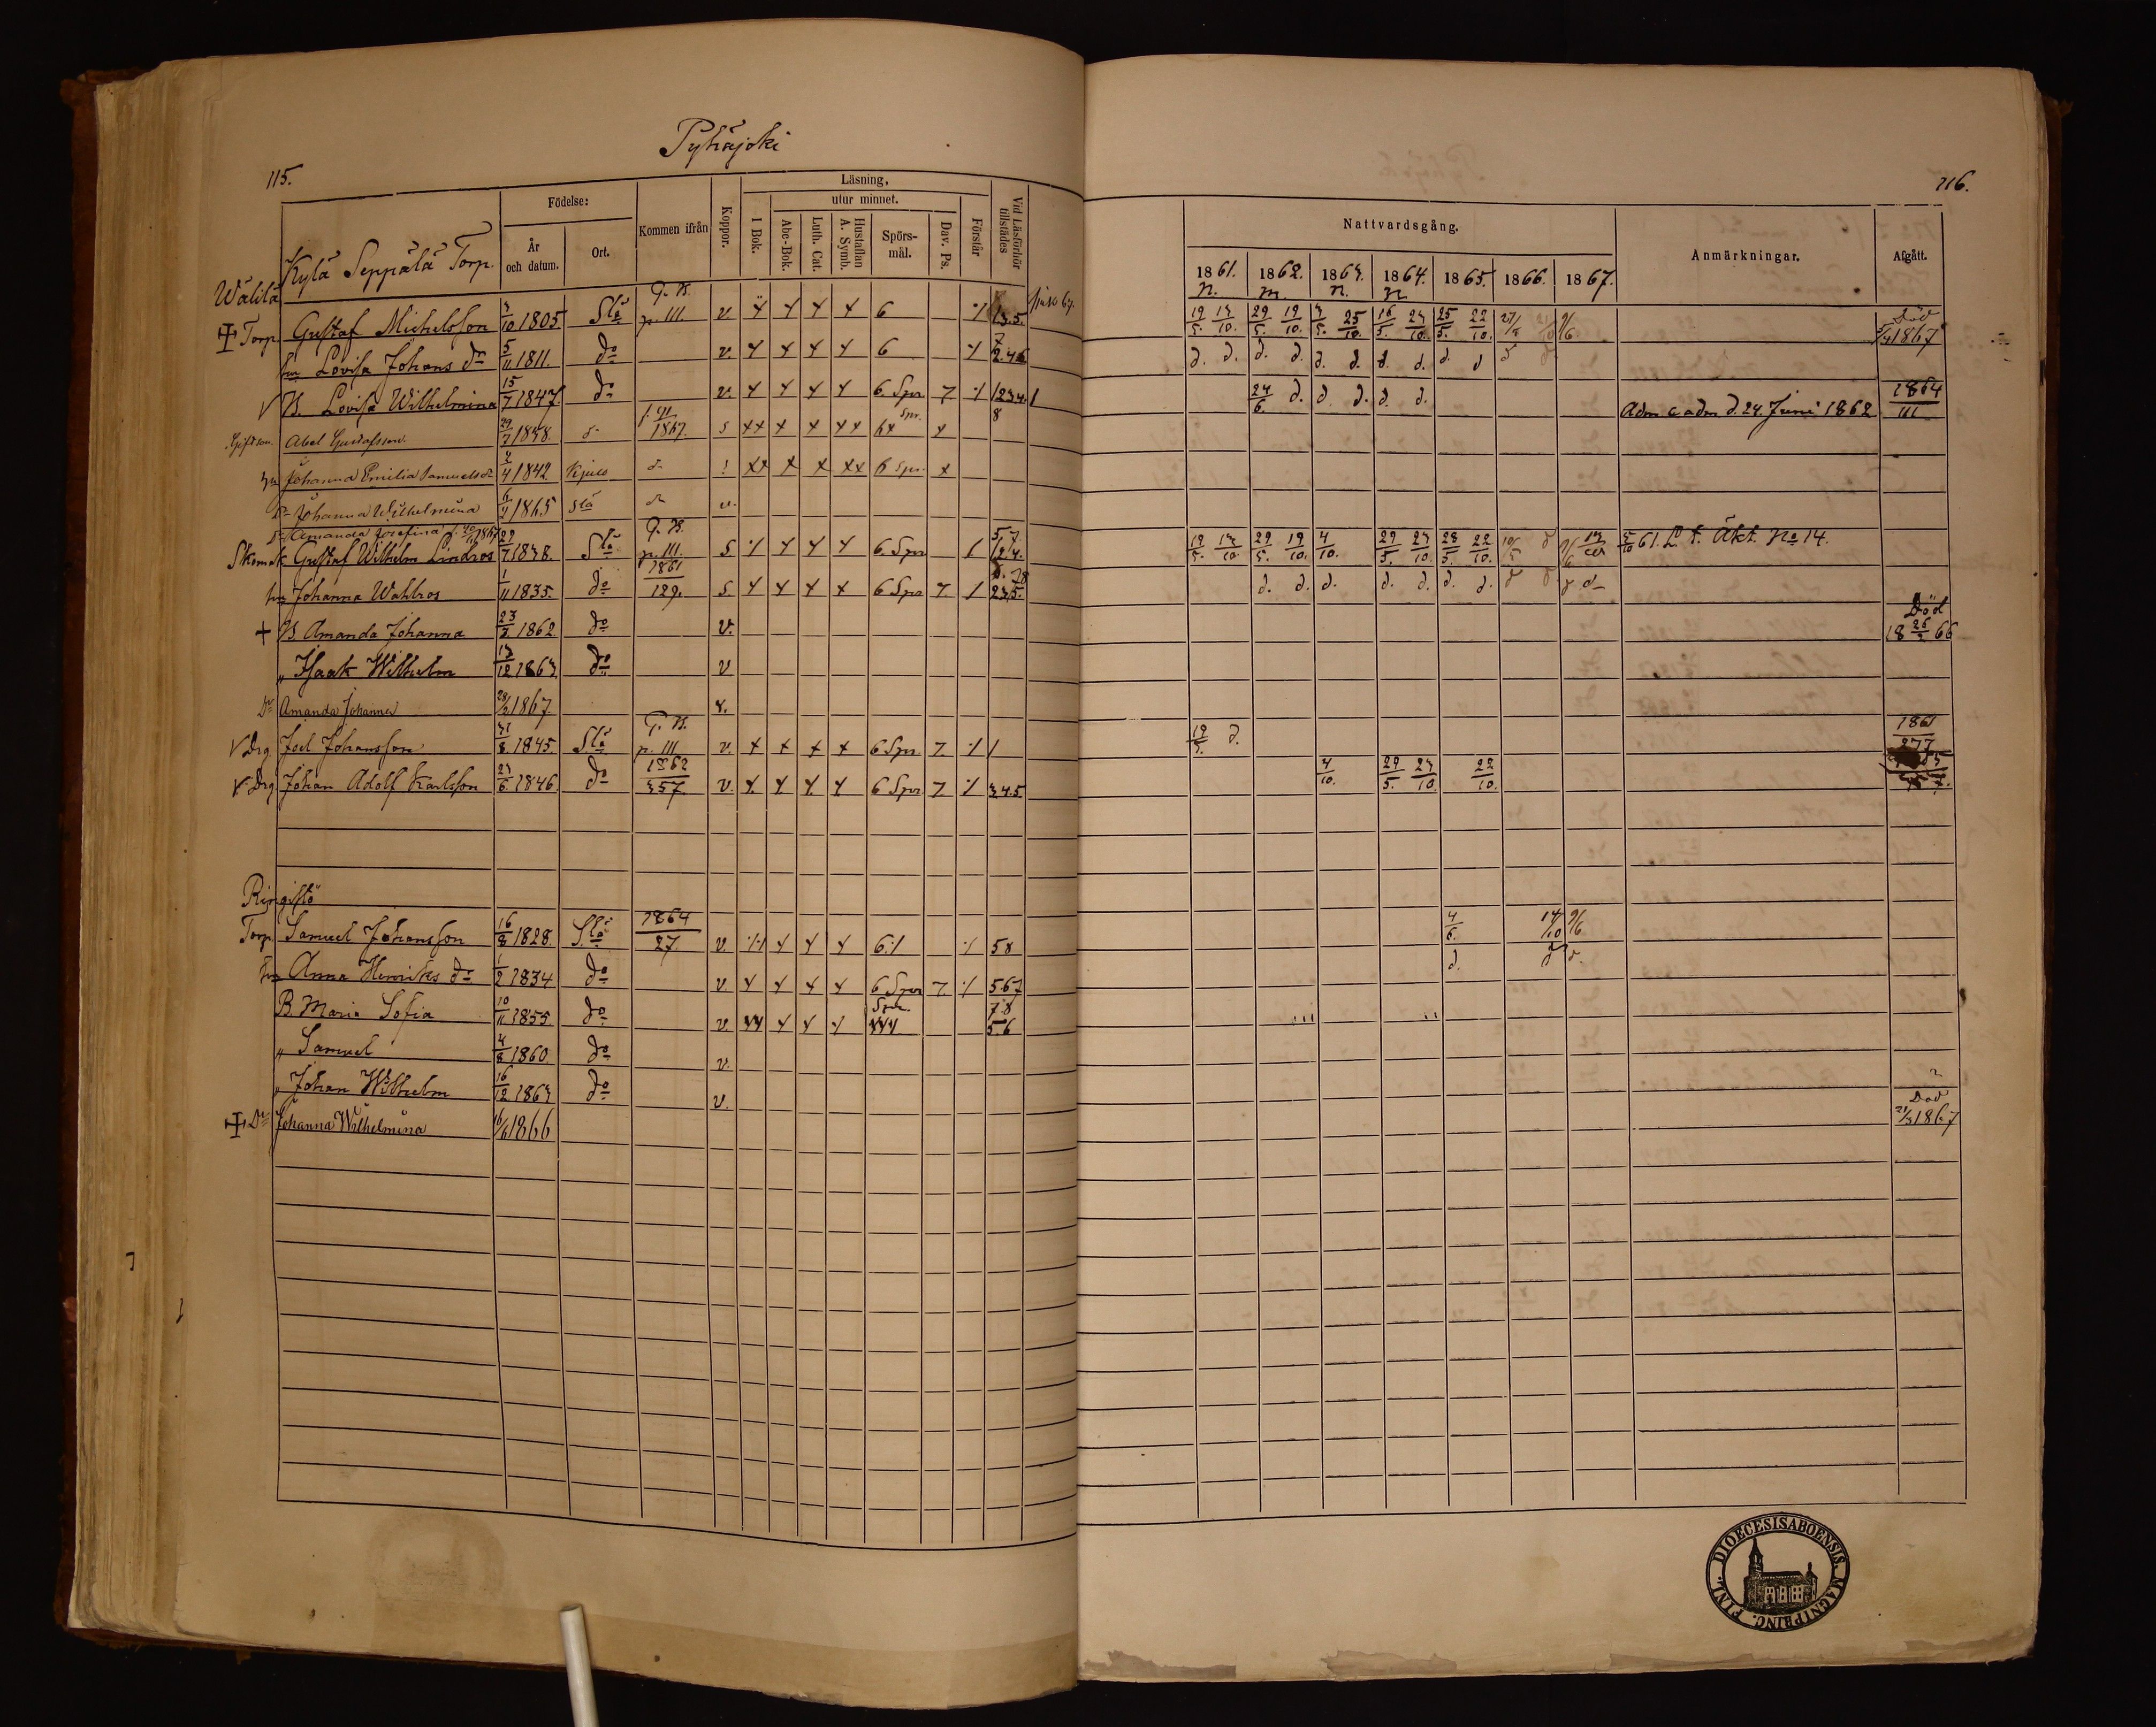 Pyhäjoki
115.
Kylä Seppälä Torp.
Födelse:
År och datum.
Ort.
Kommen ifrån
Koppor.
Läsning,
I Bok.
utur minnet.
Abc-Bok.
Luth. Cat.
Hustaflan A. Symb.
Spörs-mål.
Dav. Ps.
Förstår
Vid Läsförhör tillstädes
Wälilä
Torp. Gustaf Michelsson 3/10 1805. Slä G. B. p. 111. v. 6 1.3.5.
hu Lovisa Johans dr 5/11 1811. do v. 6 7 2.4.6
B. Lovisa Wilhelmina 15/7 1847 do v. 6. Spr 7 1234. 1
Abel Gustafsson 29/7 1838. 1867. s Spr. 8
Johanna Emilia Samuelsdr 2/4 1842 Kjulo 6 Spr.
Dr Johanna Wilhelmina 6/4 1865 Slä v.
Dr Amanda Josefina 1867
Skomak. Gustaf Wilhelm Lindros 29/7 1838. Slä G. B. p. 111. s 6. Spr 1 5.7 1.2.4.
hu Johanna Wahlros 1/11 1835. do 1861/129. s. 6 Spr 7 1 235.
B. Amanda Johanna 23/7 1862 do v.
" Isaak Wilhelm 13/12 1863 do v
Dr Amanda Johanna 28/2 1867 v.
Drg Joel Johansson 31/8 1845. Slä G. B. p. 111 v. 6 Spr. 7. 1
Drg Johan Adolf Karlsson 23/6 1846. do 1862/357. v. 6 Spr 7. 345.
Ringistö
Torp. Samuel Johansson 16/8 1828. Slä 1864/27 v. 6 58
hu Anna Henriks dr 1/2 1834 do v. 6 Spr 7. 567
B. Maria Sofia 10/11 1855. do v. Spr. 7.8 5.6
" Samuel 4/8 1860. do v.
" Johan Wilhelm 16/12 1863 do v.
Dr Johanna Wilhelmina 16/6 1866
116.
Nattvardsgång.
Anmärkningar.
Afgått.
1861. 1862. 1863. 1864. 1865. 1866. 1867.
n. m. n. n
19/5. 13/10. 29/5. 19/10. 3/5. 25/10. 16/5. 23/10. 25/5. 22/10. 9/6 Död 1867
d. d. d. d. d. d. d. d. d. d
24/6. d. d. d. d. d. Adm c adm d. 24. Juni 1862 1864/111
19/5. 13/10. 29/5. 19/10. 4/10. 29/5. 23/10. 28/5. 22/10. 5/10 61. L. t. Äkt. No 14.
d. d. d. d. d. d. d.
Död
18 26/2 66
19/5. d. 1861/277
4/10. 29/5. 23/10. 22/10.
4/6. 14/10 9/6
d. d d.
Död
21/3 1867
FINL. DIOECESIS ABOENSIS. MAGNI PRINC.